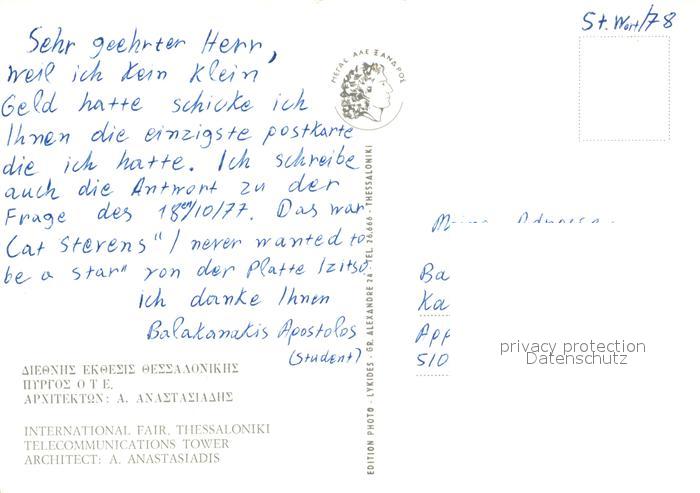 St. Wort/78
Sehr geehrter Herr,
weil ich kein Klein
Geld hatte schicke ich
Ihnen die einzigste postkarte
die ich hatte. Ich schreibe
auch die Antwort zu der
Frage des 18en/10/77. Das war
Cat Stevens "I never wanted to
be a star" von der Platte Izitso
ich danke Ihnen
Balakanakis Apostolos
(student)
ΔΙΕΘΝΗΣ ΕΚΘΕΣΙΣ ΘΕΣΣΑΛΟΝΙΚΗΣ
ΠΥΡΓΟΣ Ο Τ Ε.
ΑΡΧΙΤΕΚΤΩΝ: Α. ΑΝΑΣΤΑΣΙΑΔΗΣ
INTERNATIONAL FAIR, THESSALONIKI
TELECOMMUNICATIONS TOWER
ARCHITECT: A. ANASTASIADIS
ΜΕΓΑΣ ΑΛΕΞΑΝΔΡΟΣ
EDITION PHOTO - LYKIDES - GR. ALEXANDRE 24 - TEL. 26.666 - THESSALONIKI
Ba
Ka
App
510
privacy protection
Datenschutz